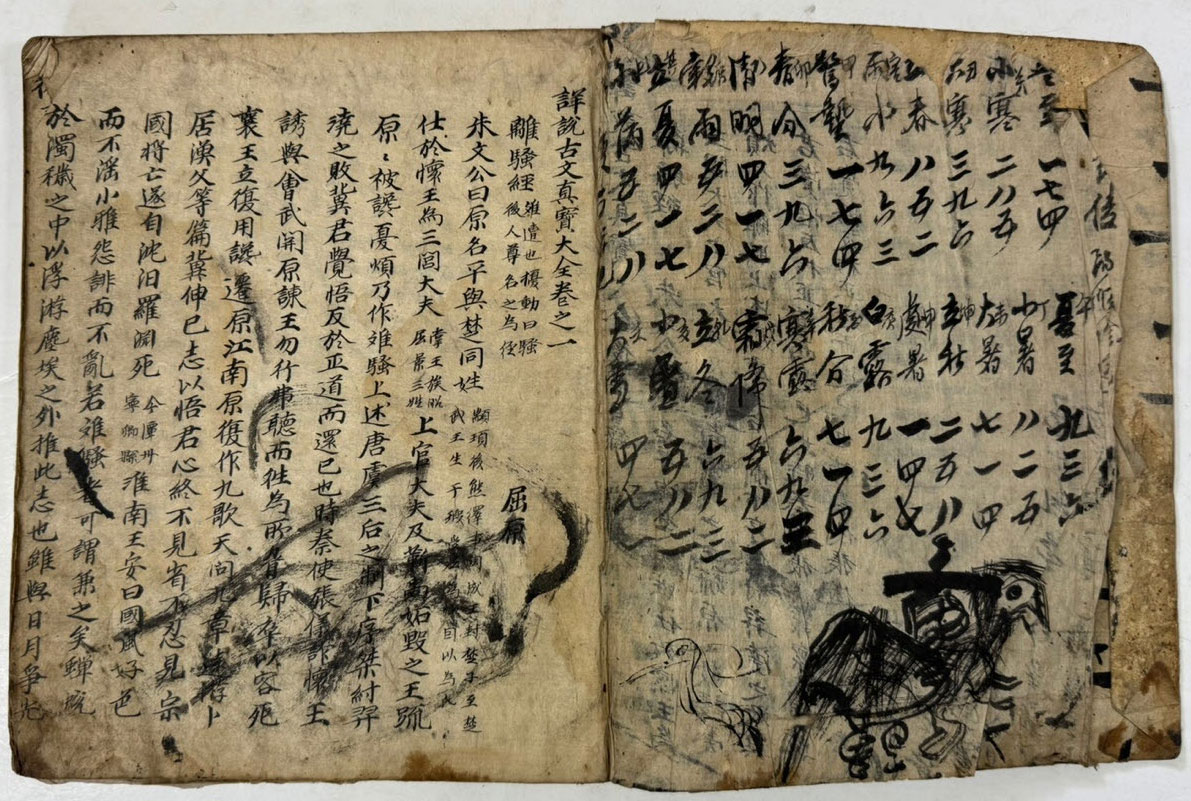 冬至 一七四
小寒 二八五
大寒 三九六
立春 八五二
雨水 九六三
驚蟄 一七四
春分 三九六
清明 四一七
雨 五二八
立夏 四一七
小滿 五二八
夏至 九三六
小暑 八二五
大暑 七一四
立秋 二五八
處暑 一四七
白露 九三六
秋分 七一四
寒露 六九三
霜降 五八二
立冬 六九三
小雪 五八二
大雪 四七
詳說古文真寶大全卷之一
離騷經 離遭也擾動曰騷後人尊名之為經
屈原
朱文公曰原名平與楚同姓 顓頊後熊繹事周成王封楚子至楚武王生子瑕
仕於懷王為三閭大夫 掌王族昭屈景三姓 上官大夫及靳尚妬毀之王踈
原〻被讒憂煩乃作離騷上述唐虞三后之制下序桀紂羿
澆之敗冀君覺悟反於正道而還已也時秦使張儀詐懷王
誘與會武關原諫王勿行弗聽而往為所脅歸卒以客死
襄王立復用讒遷原江南原復作九歌天問九章遠游卜
居漁父等篇冀伸已志以悟君心終不見省不忍見宗
國將亡遂自沈汨羅淵死 今潭州寧鄉縣 淮南王安曰國風好色
而不淫小雅怨誹而不亂若離騷者可謂兼之矣蟬蛻
於濁穢之中以浮游塵埃之外推此志也雖與日月爭光